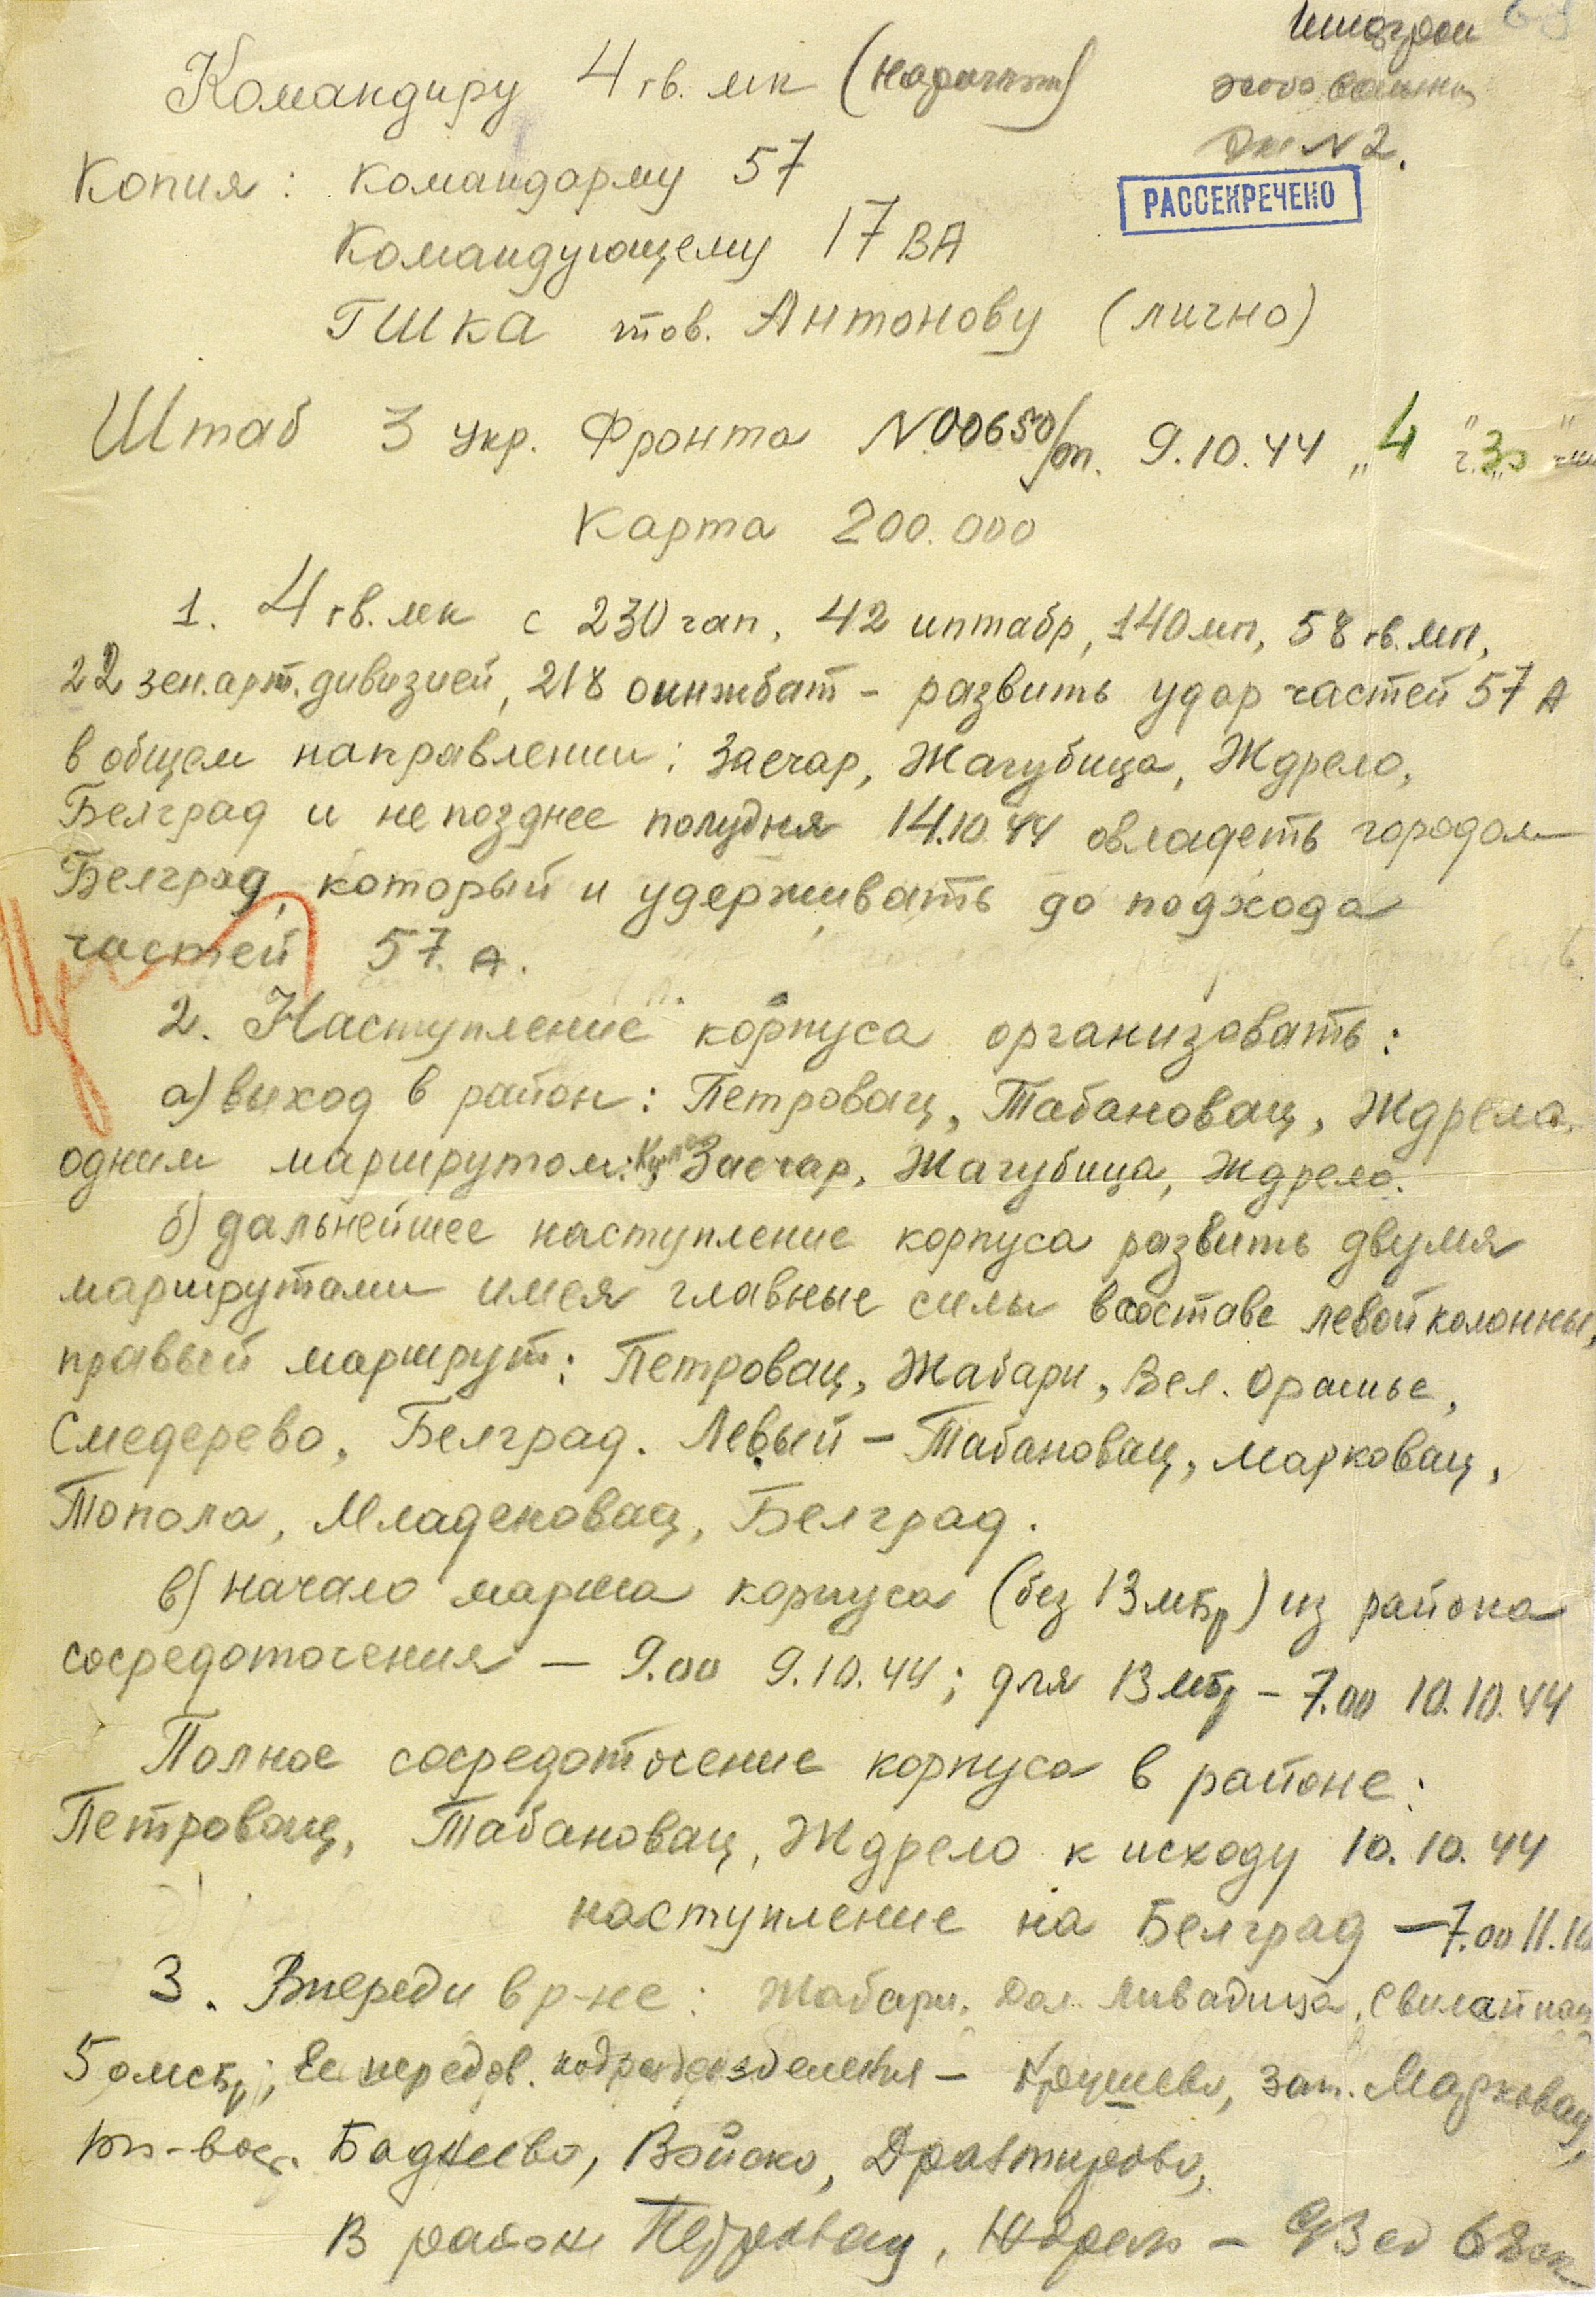 Командиру 4 гв. мк (нарочным)
Копия: Командарму 57
Командующему 17 ВА
ГШКА тов. Антонову (лично)
№ 2.
РАССЕКРЕЧЕНО
Штаб 3 Укр. Фронта №00650/оп. 9.10.44 „4" ч. „30"
Карта 200.000
1. 4 гв. мк с 230 гап, 42 иптабр, 140 мп, 58 гв. мп,
22 зен. арт. дивизией, 218 оинжбат – развить удар частей 57 А
в общем направлении: Заечар, Жагубица, Ждрело,
Белград и не позднее полудня 14.10.44 овладеть городом
Белград, который и удерживать до подхода
частей 57. А.
2. Наступление корпуса организовать:
а) выход в район: Петровац, Табановац, Ждрело,
одним маршрутом: Кула Заечар, Жагубица, Ждрело.
б) дальнейшее наступление корпуса развить двумя
маршрутами имея главные силы в составе левой колонны,
правый маршрут: Петровац, Жабари, Вел. Орашье,
Смедерево, Белград. Левый – Табановац, Марковац,
Топола, Младеновац, Белград.
в) начало марша корпуса (без 13 мбр) из района
сосредоточения – 9.00 9.10.44; для 13 мбр – 7.00 10.10.44
Полное сосредоточение корпуса в районе:
Петровац, Табановац, Ждрело к исходу 10.10.44
наступление на Белград – 7.00 11.10
3. Впереди в р-не: Жабари, Дол. Ливадица, Свилайнац
5 омсбр; Ее передов. подразделения – Крушево, зап. Марковац,
Баднево, Войска,
В районе Петровац, Ждрело – 93 сд 68 ск